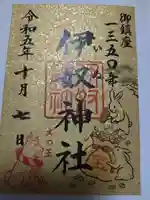 御鎮座
一三五〇年
伊奴神社
令和五年十月七日